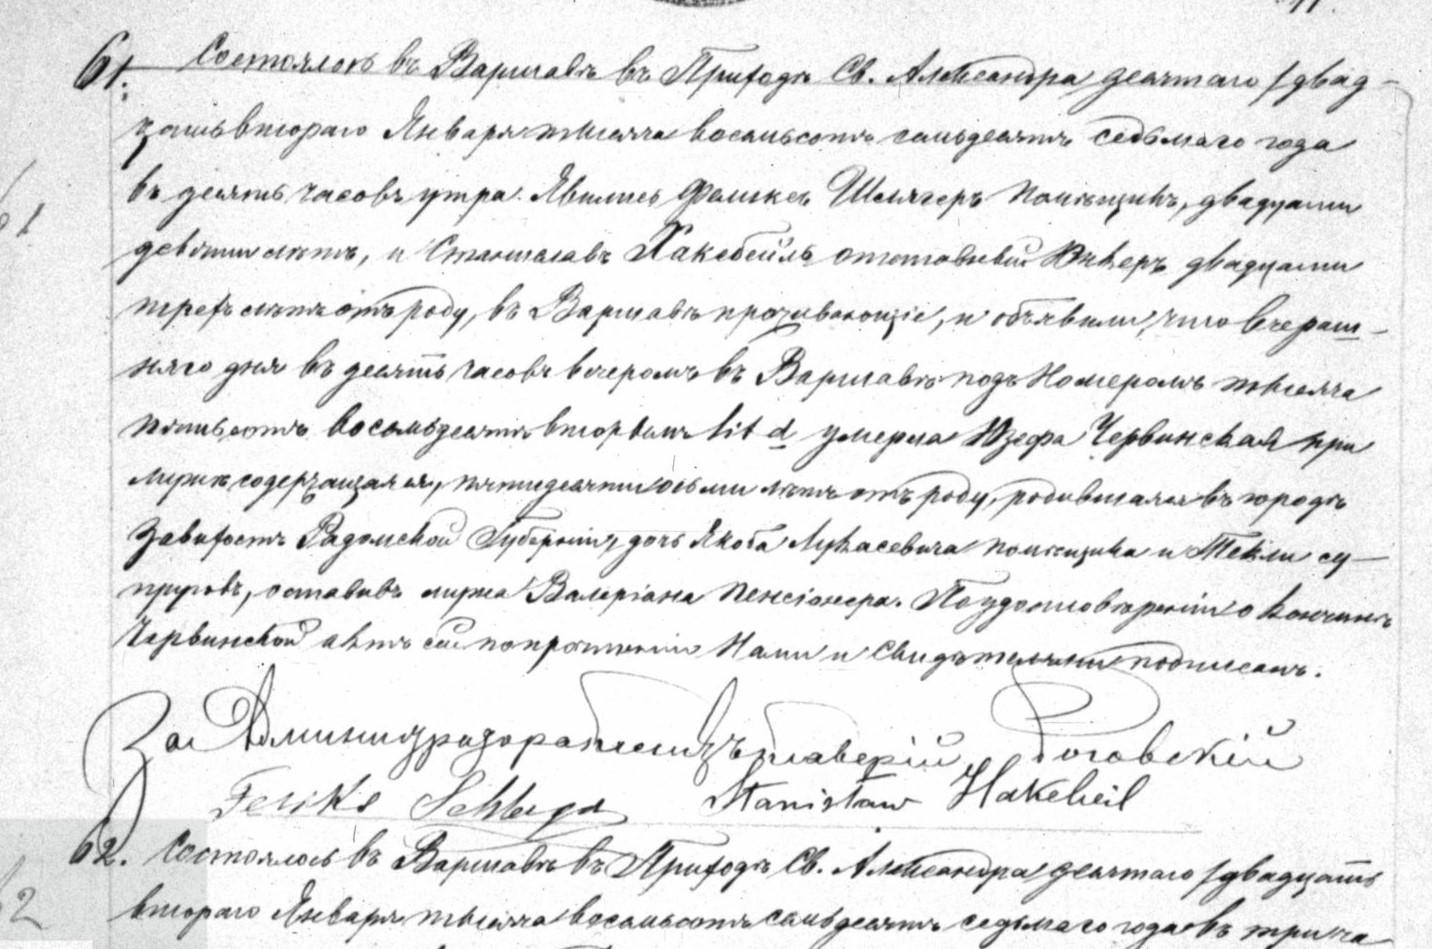 61. Состоялось въ Варшавѣ въ Приходѣ Св. Александра десятаго / двад-
цать втораго Января тысяча восемьсотъ семьдесятъ седьмаго года
въ десять часовъ утра. Явились Феликсъ Шлягеръ помѣщикъ, двадцати
девяти лѣтъ, и Станиславъ Хакебейль отставный Юнкеръ двадцати
трехъ лѣтъ отъ роду, въ Варшавѣ проживающіе, и объявили, что вчераш-
няго дня въ десять часовъ вечеромъ въ Варшавѣ подъ Номеромъ тысяча
пятьсотъ восемьдесятъ вторымъ lit d умерла Юзефа Червинская при
мужѣ содержащаяся, пятидесяти осьми лѣтъ отъ роду, родившаяся въ городѣ
Завихостъ Радомской Губерніи, дочь Якоба Лукасевича помѣщика и Текли су-
пруговъ, оставивъ мужа Валеріана пенсіонера. По удостовѣреніи о кончинѣ
Червинской актъ сей по прочтеніи Нами и Свидѣтелями подписанъ.
За Администратора Ксендзъ Ксаверій Роговскій
Feliks Stanisław Hakebeil
62. Состоялось въ Варшавѣ въ Приходѣ Св. Александра десятаго / двадцать
втораго Января тысяча восемьсотъ семьдесятъ седьмаго года въ три ча-
61
62